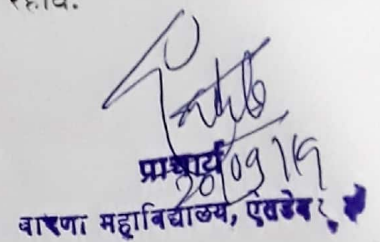 रहाव.
प्राचार्य
20/09/19
वारणा महाविद्यालय, ऐतवडे